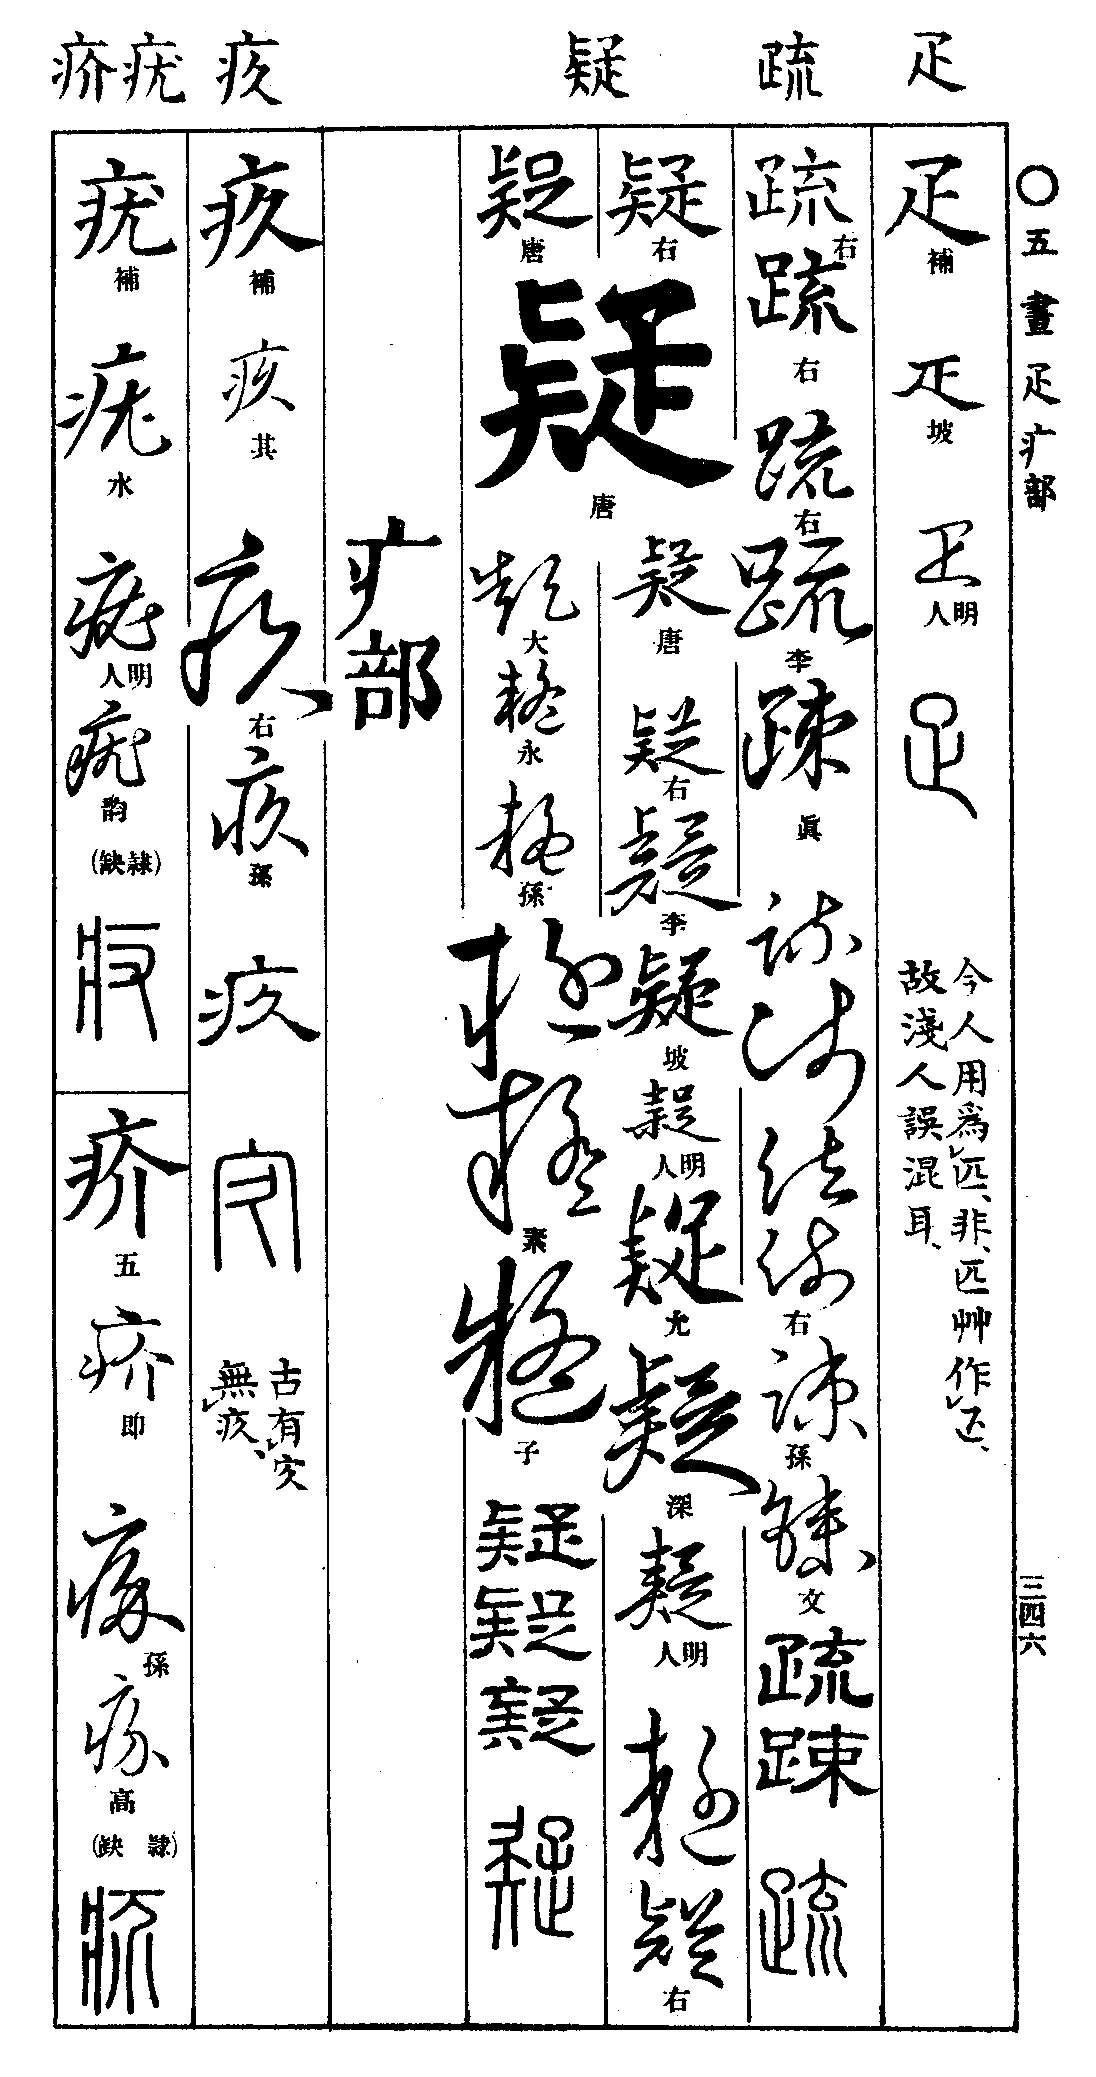 疋
疏
疑
疚
疣 疥
〇五畫 疋疒部
三四六
疋 補
疋 坡
疋 明人
疋
今人用爲匹、非、匹艸作疋、
故淺人誤混耳、
疏 右
疏 右
疏 右
疏 李
疎 眞
疎
疎
疎
疎 右
疎 孫
疎 文
疏
疎
疏
疑 右
疑 唐
疑 唐
疑 唐
疑 右
疑 李
疑 坡
疑 明人
疑 允
疑 深
疑 明人
疑
疑 右
疑 大
疑 永
疑 孫
疑
疑 素
疑 子
疑
疑
疑
疑
疒部
疚 補
疚 其
疚 右
疚 孫
疚
古有㝌
無疚、
疣 補
疣 水
疣 明人
疣 韵
（隷缺）
疥 五
疥 即
疥 孫
疥 高
（隷缺）